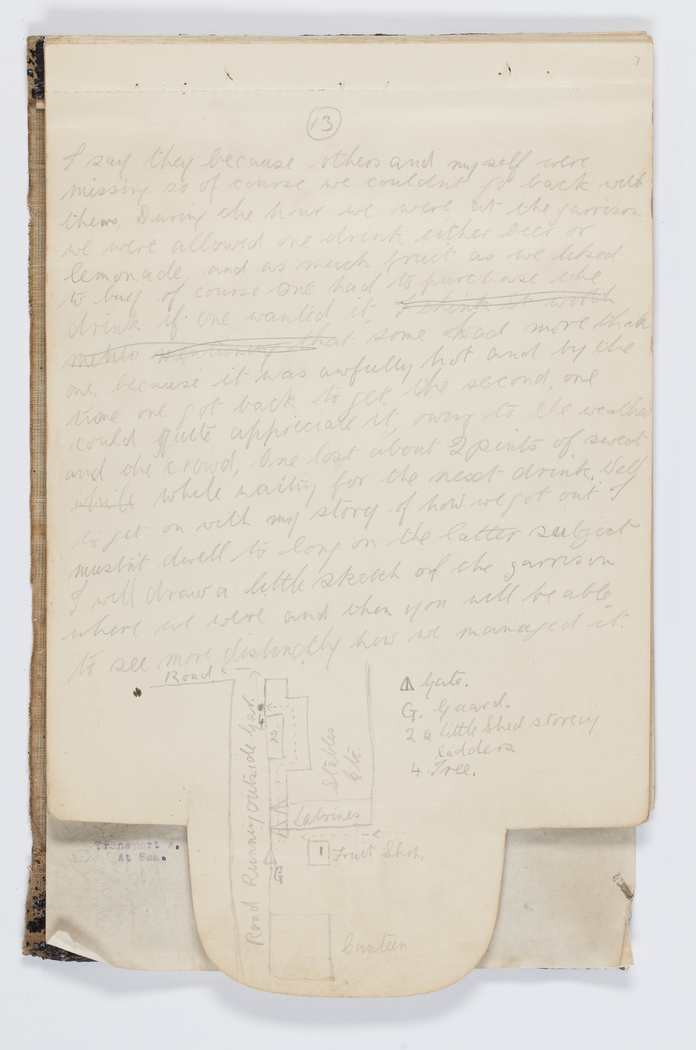 13
I say they because others and myself were
missing so of course we couldnt go back with
them. During the hour we were at the garrison
we were allowed one drink either beer or
lemonade and as much fruit as we liked
to buy of course One had to purchase the
drink if one wanted it. I think it worth
while mentioning that some had more than
one, because it was awfully hot and by the
time one got back to get the second, one
could quite appreciate it, owing to the weather
and the crowd, One lost about 2 pints of sweat
while while waiting for the next drink. Well
to get on with my story of how we got out I
mustnt dwell to long on the latter subject
I will draw a little sketch of the garrison
where we were and when you will be able
to see more distinctly how we managed it.
Road
Gate.
G. Guard.
2 a little Shed storeing
ladders.
4 Tree.
Road Running outside Gar.
2
Stables
Etc.
Latrines
1 Fruit Shop.
G
Canteen
Transport A.
At Sea.